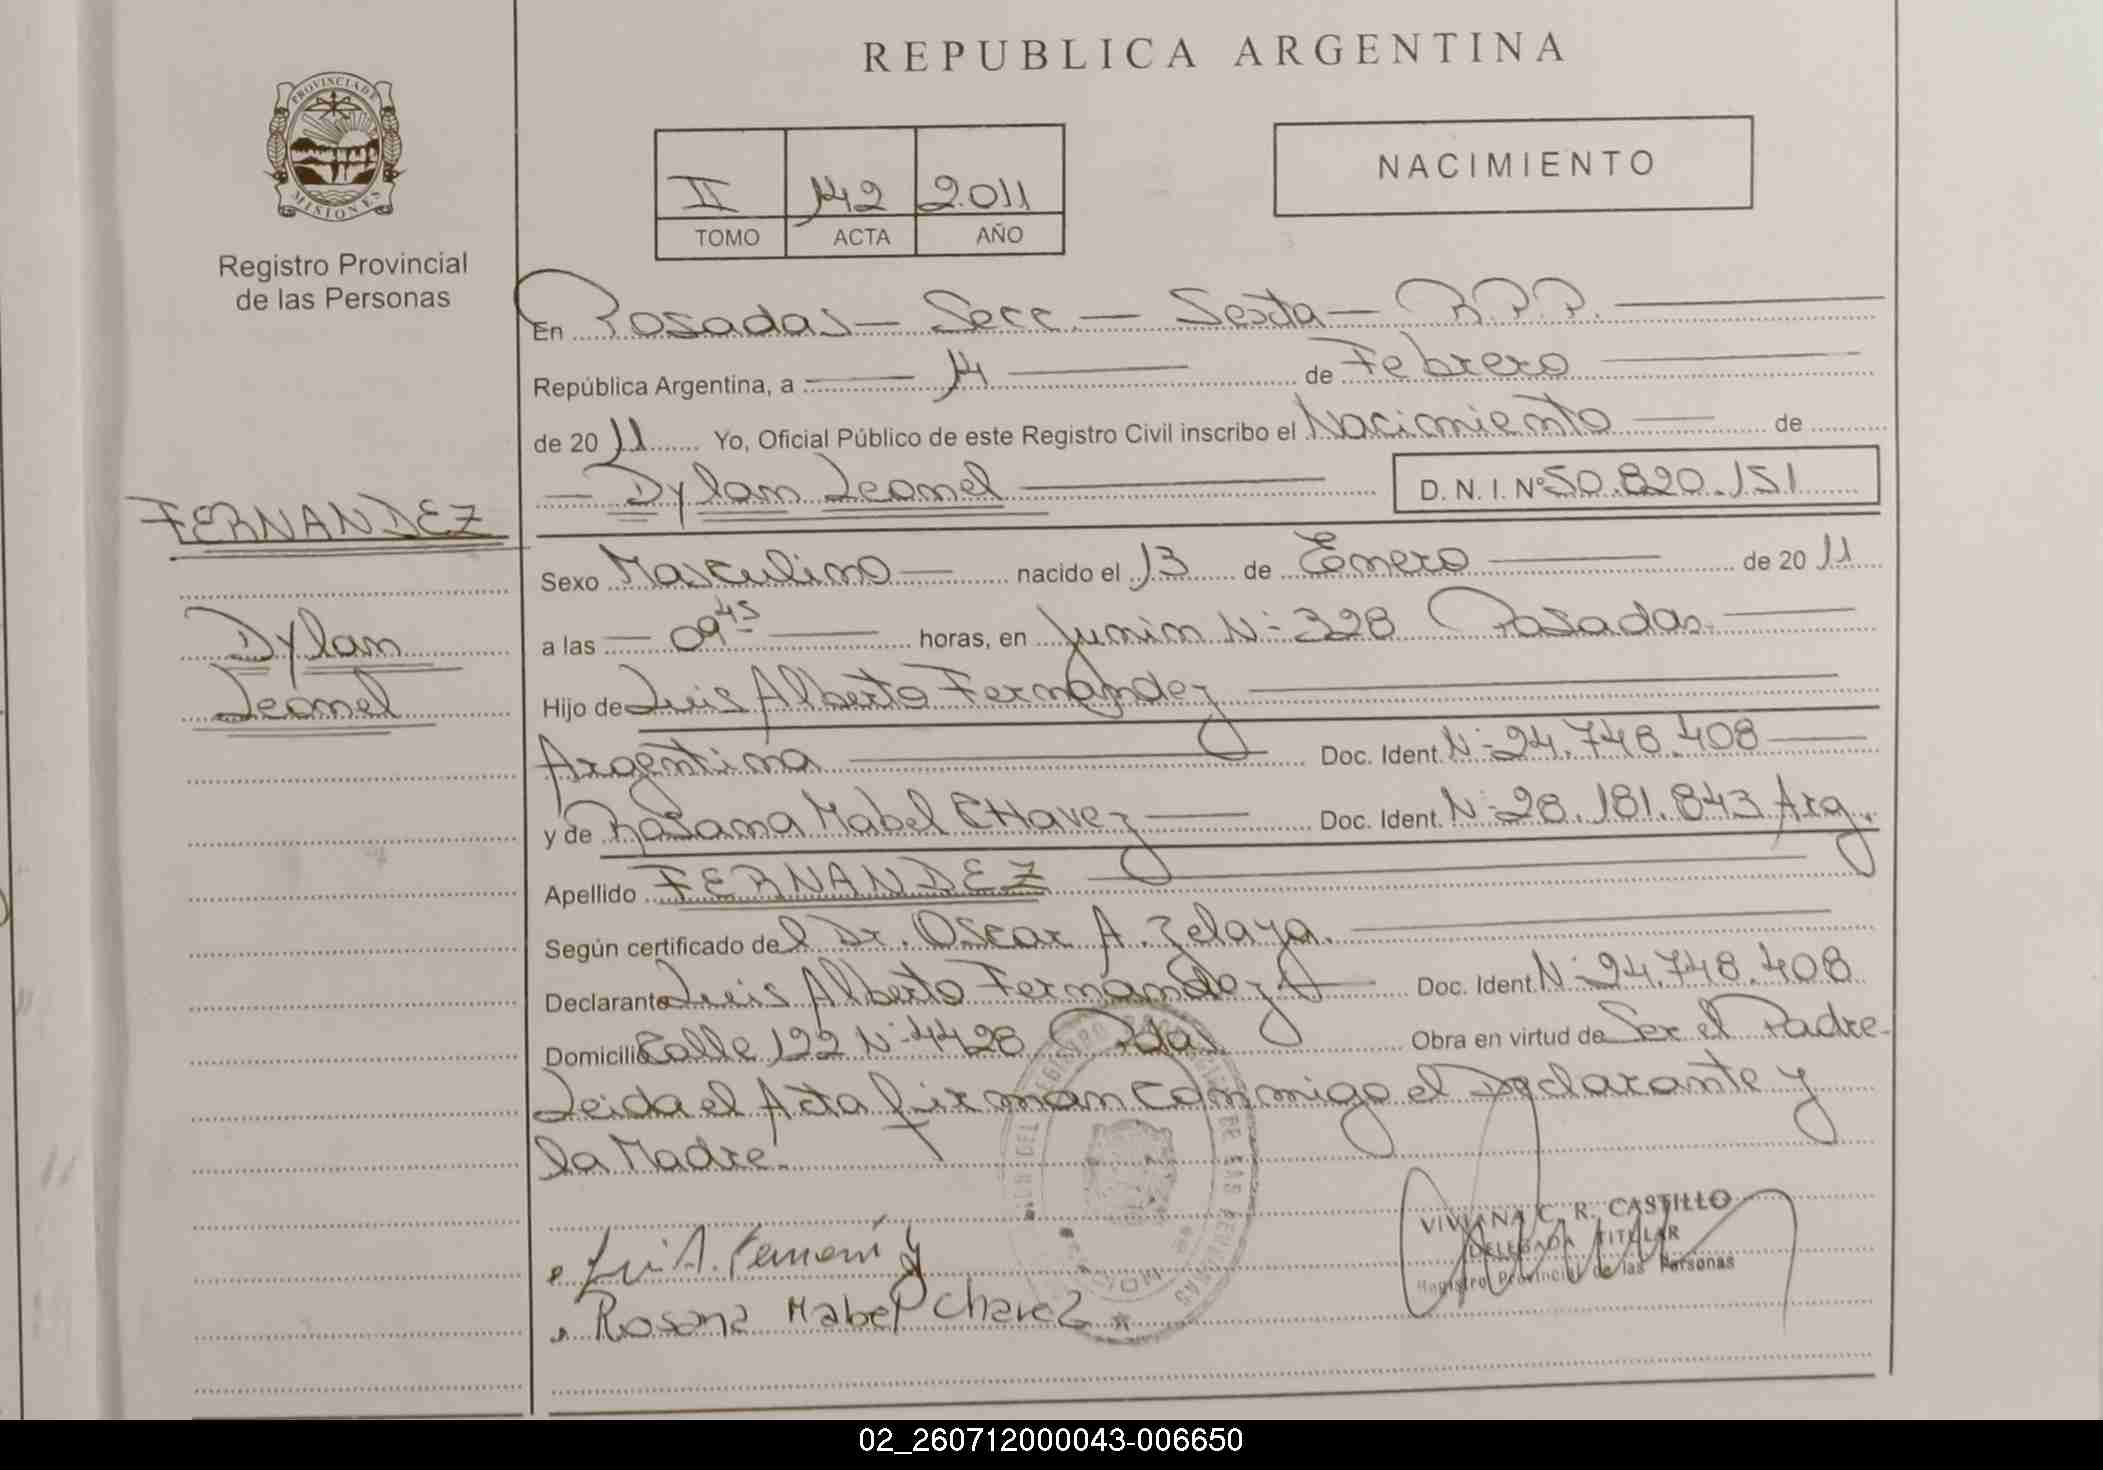 REPUBLICA ARGENTINA
PROVINCIA DE
MISIONES
Registro Provincial
de las Personas
NACIMIENTO
II 142 2.011
TOMO ACTA AÑO
En Posadas - Secc. - Sexta - R.P.P.
República Argentina, a 14 de Febrero
de 20 11 Yo, Oficial Público de este Registro Civil inscribo el Nacimiento de
Dylan Leonel D. N. I. Nº 50.820.151
FERNANDEZ
Dylan
Leonel
Sexo Masculino nacido el 13 de Enero de 20 11
a las 09 45 horas, en Junin Nº 328 Posadas.
Hijo de Luis Alberto Fernández
Argentina Doc. Ident. Nº 24.748.408
y de Rosana Mabel CHavez Doc. Ident. Nº 28.181.843 Arg.
Apellido FERNANDEZ
Según certificado del Dr. Oscar A. Zelaya.
Declarante Luis Alberto Fernandez Doc. Ident. Nº 24.748.408
Domicilio Calle 122 Nº 4428 Pdas Obra en virtud de Ser el Padre-
Leida el Acta firman conmigo el Declarante y
la Madre.
VIVIANA C. R. CASTILLO
DELEGADA TITULAR
Registro Provincial de las Personas
Rosana Mabel Chavez
02_260712000043-006650